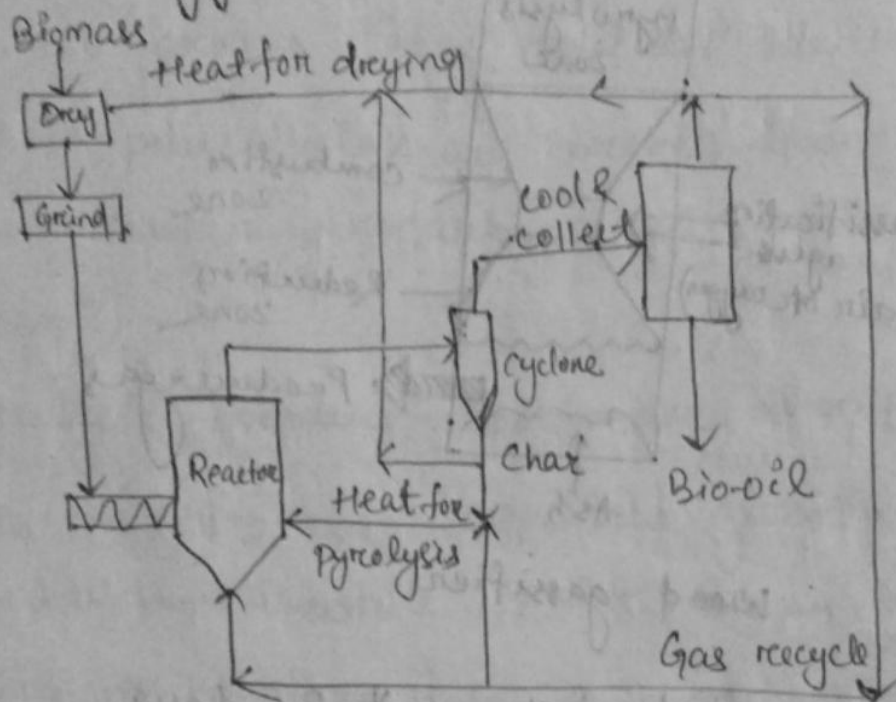 Biomass
Heat for dreying
Drey
Grind
cool &
collect
Cyclone
Reactor
Char
Heat for
pyrolysis
Bio-oil
Gas reecycle